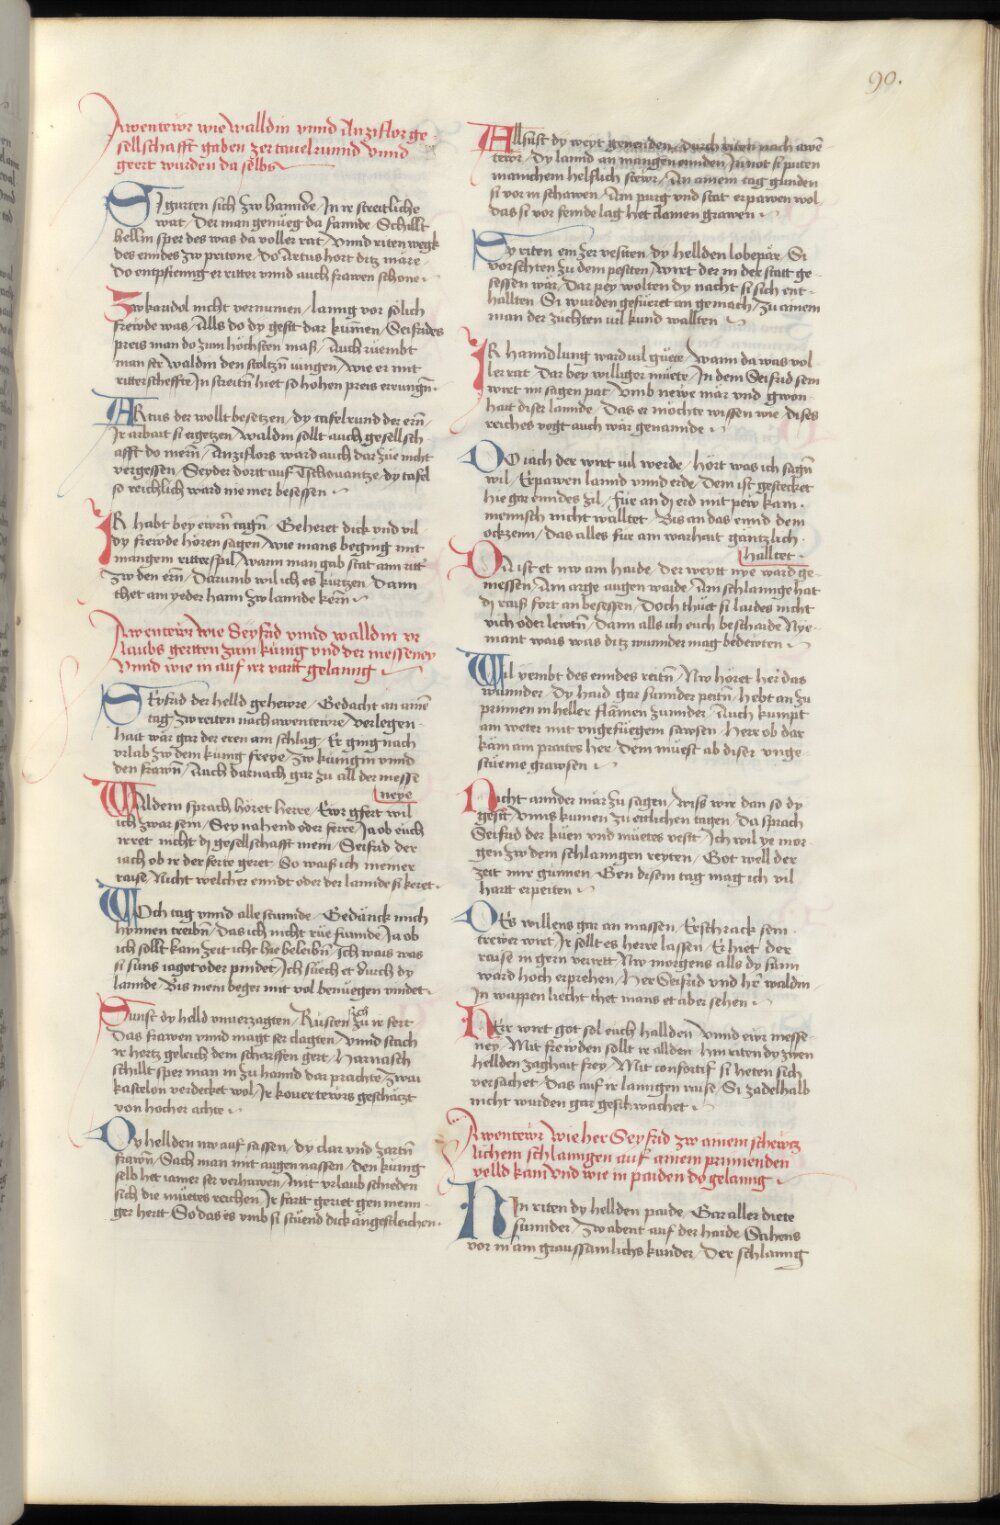 90.
Awentewr wie Walldin vnnd Anziflor ge-
sellschafft gaben zer tauelrunnd vnnd
geert wurden da selbs
SI gurten sich zw hannde / In re streitliche
wat / Der man genueg da fannde / Schillt
hellm sper des was da voller rat / Vnnd riten wegk
des enndes zw pritone / Do Artus hort ditz märe /
Do entpfienng er ritter vnnd auch frawen schone
Zw karidol nicht vernumen / lanng vor sölich
frewde was / Alls do dy gesst dar kumen / Seifrides
preis man do zum höchsten maß / Auch rüembt
man ser waldin den stoltzn iungen / wie er mit
ritterscheffte In streitn hiet so hohen preis errungn
ARtus der wollt besetzen / dy tafelrund der ern /
Ir arbait si ergetzen / waldin sollt auch gesellsch
afft do mern / Anziflors ward auch dar zue nicht
vergessen / Seyder dort auf Tschouantze / dy tafel
so reichlich ward nie mer besessen
IR habt bey ewrn tagn / Geheret dick vnd vil
dy frewde hören sagen / wie mans beging mit
mangem ritterspil / wann man gab stat am rit
zw den ern / Darumb wil ich es kurtzen / Dann
thet am yeder hann zw lannde kern
Awentewr wie Seyfrid vnnd walldin vr
laubs gerten zum künig vnd der messeney
Vnnd wie in auf irr vartt gelanng
SEyfrid der helld gehewre / Gedacht an aine
tag / zw reiten nach awentewre / verlegen-
hait wär gar der eren am schlag / Er ging nach
vrlab zw dem kunig freye / zw künigin vnnd
den frawn / Auch darnach gar zu all der messe
neye
WAldein sprach höret herre / Ewr gfert wil
ich zwar sein / Sey nahend oder ferre / Ja ob euch
irret nicht di gesellschafft mein / Seifrid der
iach ob ir der ferte geret / So waiß ich meiner
raise / Nicht welcher enndt oder der lannde si keret
WOch tag vnnd alle stunnde / Gedänck mich
hynnen treibn / Das ich nicht rüe funnde / Ja ob
ich sollt kain zeit icht hie beleibn / Ich wais was
si suns iaget oder pindet / Ich suech et durch dy
lannde / Bis mein beger mit vol benüegen vindet
Sunst dy helld vnuerzagten / Rusten sich zu ir fert
Das frawen vnnd magt ser clagten / Vnnd stach
ir hertz geleich dem scharffen gert / Harnasch
schillt sper man in zu hannd dar prachte / zwai
kastelon verdecket wol / Ir kouertewrs geschätzt
von hocher achte
DY hellden nw auf sassen / dy clar vnd zartn
frawn / Sach man mit augen nassen / Den kunig
selb het iamer ser verhawen / Mit vrlaub schieden
sich die müetes reichen / Ir fartt geriet gen mann-
ger hertt / So das es vmb si stuend dick ängestleichen
ALlsust dy weyt genenden / Durch riten nach awe
tewr / Dy lannd an mangen ennden / In not si puten
manichem helflich stewr / An ainem tag gunden
si vor in schawen / Am purg vnd stat erpawen wol
das si vor semde lag het damen grawen
SY riten ein zer vesiten / dy hellden lobepär / Si
vorschten zu dem pesiten / wirt der in der statt ge-
sessen wär / Dar pey wolten dy nacht si sich ent-
hallten / Si wurden gefüeret an gemach / zu ainem
man der zuchten vil kund wallten
IR hanndlung ward vil güete / wann da was vol
ler rat / Dar bey williger müete / In dem Seifrid sein
wirt im sagen pat / Vmb newe mär vnd gwon-
hait diser lannde / Das er möchte wissen wie dises
reiches vogt auch wär genannde
DO iach der wirt vil werde / hört was ich sagn
wil / Erpawen lannd vnnd erde / Dem ist gestecket
hie gar enndes zil / Für an di erd mit pew kain
mennsch nicht walltet / Bis an das ennd dem
ockzenn / Das alles für am warhait gäntzlich
halltet
DA ist et nw am haide / Der weytt nye ward ge-
messen / Am arge augen waide / Am schlannge hat
di raiß fort an besessen / Doch thuet si laides nicht
vich oder lewtn / Dann alls ich euch beschaide / Nye-
mant wais was ditz wunnder mag bedewten
WIl yembt des enndes reitn / Nw höret her das
wunnder / Dy haid gar sunnder peitn / hebt an zu
prinnen in heller flämen zunnder / Auch kumpt
am weter mit vngefüegem sawsen / Herr ob dar
käm am praites her / Dem müest ab diser vnge-
stüeme grawsen
NIcht annder mär zu sagen / wiß wir dan so dy
gesst / Vnns kumen zu etlichen tagen / Da sprach
Seifrid der küen vnd müetes vesst / Ich wil ye mor-
gen zw dem schlanngen reyten / Got well der
zeit mir gunnen / Gen disem tag mag ich vil
hartt erpeiten
DEs willens gar an massen / Erschrack sein
trewer wirt / Ir sollt es herre lassen / Er hiet der
raise in gern verrett / Nw morgens alls dy sunn
ward hoch erprehen / Her Seifrid vnd her waldin
In wappen liecht thet mans et aber sehen
HErr wirt got sol euch hallden / Vnnd ewr messe-
ney / Mit frewden sollt ir allden / hin riten dy zwen
hellden zaghait frey / Mit confortif si heten sich
versachet / Das auf ir lanngen raise / Si zadelhalb
nicht wurden gar geschwachet
Awentewr wie her Seyfrid zw ainem schewtz
lichem schlanngen auf ainem prinnenden
velld kam vnd wie in paiden do gelanng
HIn riten dy hellden paide / Gar aller diete
sunnder / zw abent auf der haide / Sahens
vor in ain graussamlichs kunder / Der schlanng